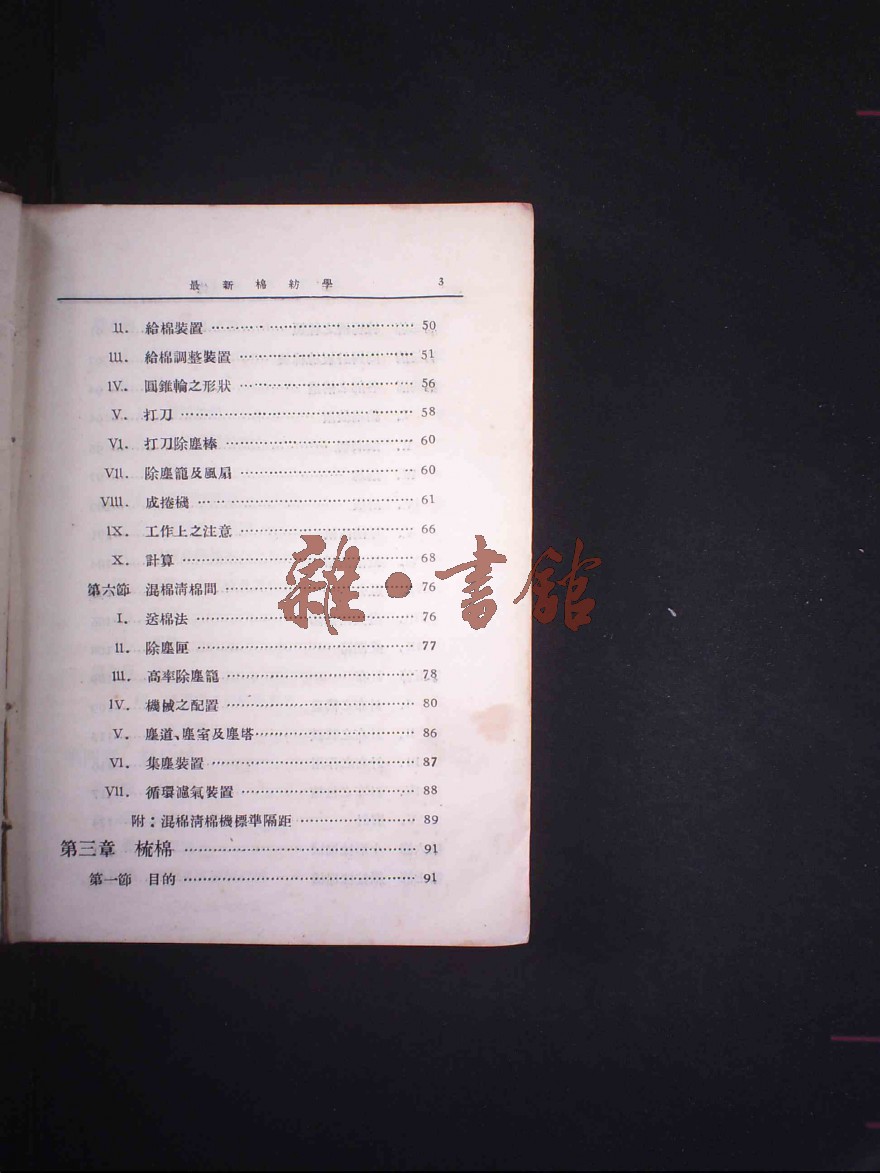 最新棉紡學 3
II. 給棉裝置 50
III. 給棉調整裝置 51
IV. 圓錐輪之形狀 56
V. 打刀 58
VI. 打刀除塵棒 60
VII. 除塵籠及風扇 60
VIII. 成捲機 61
IX. 工作上之注意 66
X. 計算 68
第六節 混棉清棉間 76
I. 送棉法 76
II. 除塵匣 77
III. 高率除塵籠 78
IV. 機械之配置 80
V. 塵道、塵室及塵塔 86
VI. 集塵裝置 87
VII. 循環濾氣裝置 88
附：混棉清棉機標準隔距 89
第三章 梳棉 91
第一節 目的 91
雜·書館